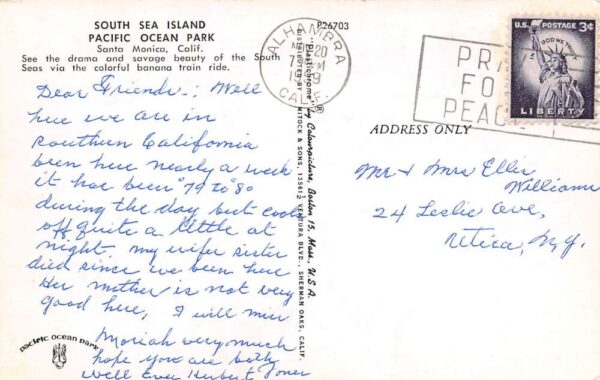 SOUTH SEA ISLAND
PACIFIC OCEAN PARK
Santa Monica, Calif.
See the drama and savage beauty of the South
Seas via the colorful banana train ride.
P26703
Dear Friends: Well
here we are in
southern California
been here nearly a week
it has been 79 to 80
during the day but cools
off quite a little at
night. my wifes sister
died since we been here
Her mother is not very
good here, I will miss
Moriah very much
hope you are both
well Ever Herbert Jones
pacific ocean park
"Plastichrome" ® by Colourpicture, Boston 15, Mass., U.S.A.
DISTRIBUTED BY MITOCK & SONS, 13561½ VENTURA BLVD., SHERMAN OAKS, CALIF.
ALHAMBRA
20
7 PM
CALIF.
PRAY
FOR
PEACE
U.S. POSTAGE 3¢
IN GOD WE TRUST
LIBERTY
ADDRESS ONLY
Mr & Mrs Ellis
Williams
24 Leslie Ave,
Utica, N.Y.